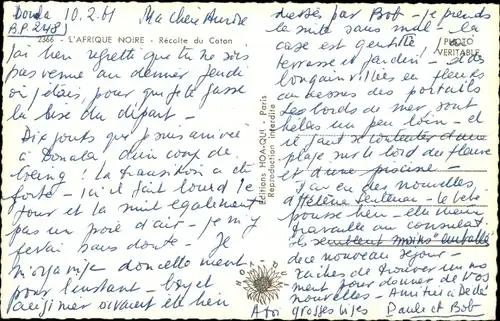 Douala 10.2.61
B.P. 2481
Ma chère Aurore
2366 - L'AFRIQUE NOIRE - Récolte du Coton
J'ai bien regretté que tu ne sois
pas venue au dernier jeudi
où j'étais, pour que je te fasse
la bise du départ!
Dix jours que je suis arrivée
à Douala d'un coup de
boeing! La transition a été
forte - ici il fait lourd le
jour et la nuit également
pas un poil d'air - je m'y
ferai sans doute. Je
m'organise doucettement
pour l'instant - boy et
cuisinier arrivent et bien
Editions HOA-QUI - Paris
Reproduction interdite
HOA-QUI
PHOTO
VERITABLE
dressés par Bob - je prends
la suite sans mal - la
case est gentille!
terrasse et jardin! - des
bougainvillées en fleurs
au dessus des portails
Les bords de mer, sont
hélas un peu loin - et
il faut se contenter d'une
plage sur le bord du fleuve
et d'une piscine -
J'ai eu des nouvelles
d'Hélène - le bébé
pousse bien - elle vient
travailler au consulat.
Ils semblent moins emballés
de ce nouveau séjour -
Tâches de trouver un mo
ment pour donner de vos
nouvelles - Amitiés à Dédé
A toi grosses bises Paule et Bob